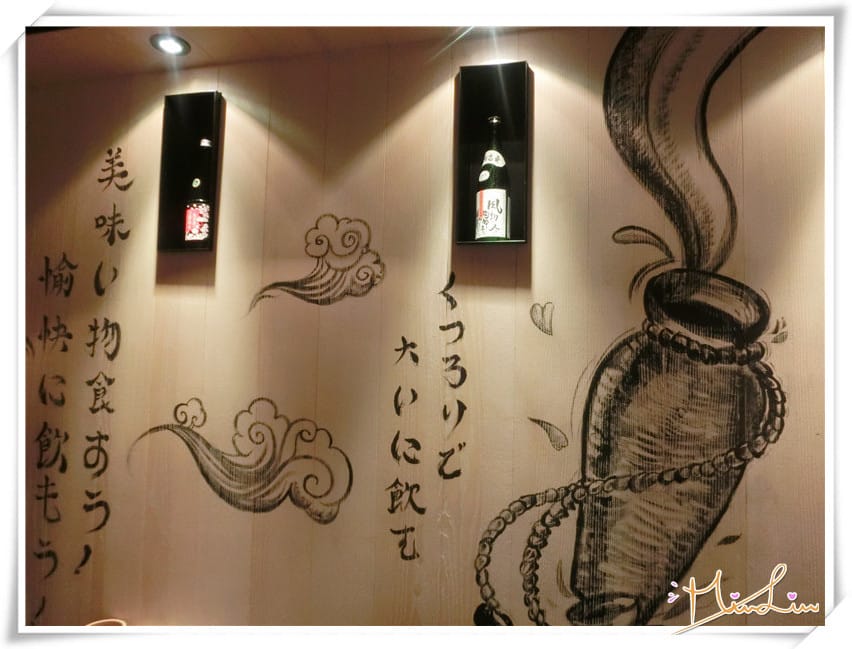 美味い物食おう!
愉快に飲もう!
くつろりご
大いに飲む
MianLin